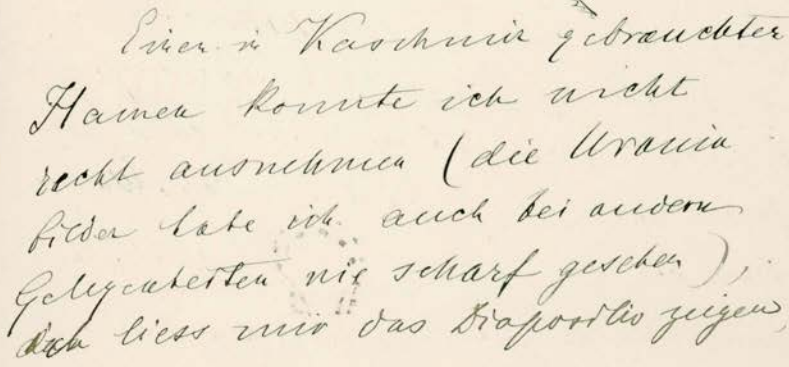 Einen in Kaschmir gebrauchten
Hamen konnte ich nicht
recht ausnehmen (die Urania
bilder habe ich auch bei andern
Gelegenheiten nie scharf gesehen),
liess mir das Diapositiv zeigen,